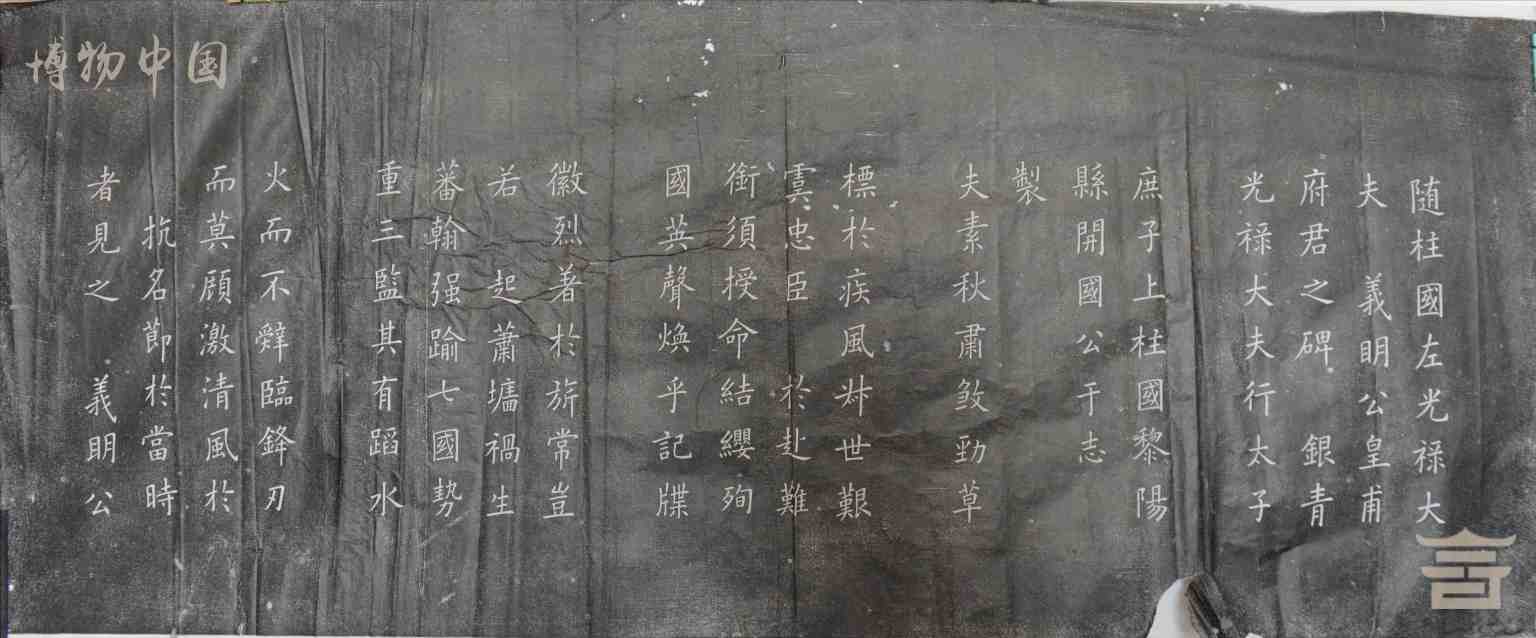 博物中国
随柱國左光禄大
夫 義明公皇甫
府君之碑 銀青
光禄大夫行太子
庶子上柱國黎陽
縣開國公于志
製
夫素秋肅煞勁草
標於疾風叔世艱
虞忠臣 於赴難
銜須授命結纓殉
國英聲煥乎記牒
徽烈著於旂常豈
若 起蕭墻禍生
蕃翰强踰七國勢
重三監其有蹈水
火而不辭臨鋒刃
而莫顧激清風於
抗名節於當時
者見之 義明公